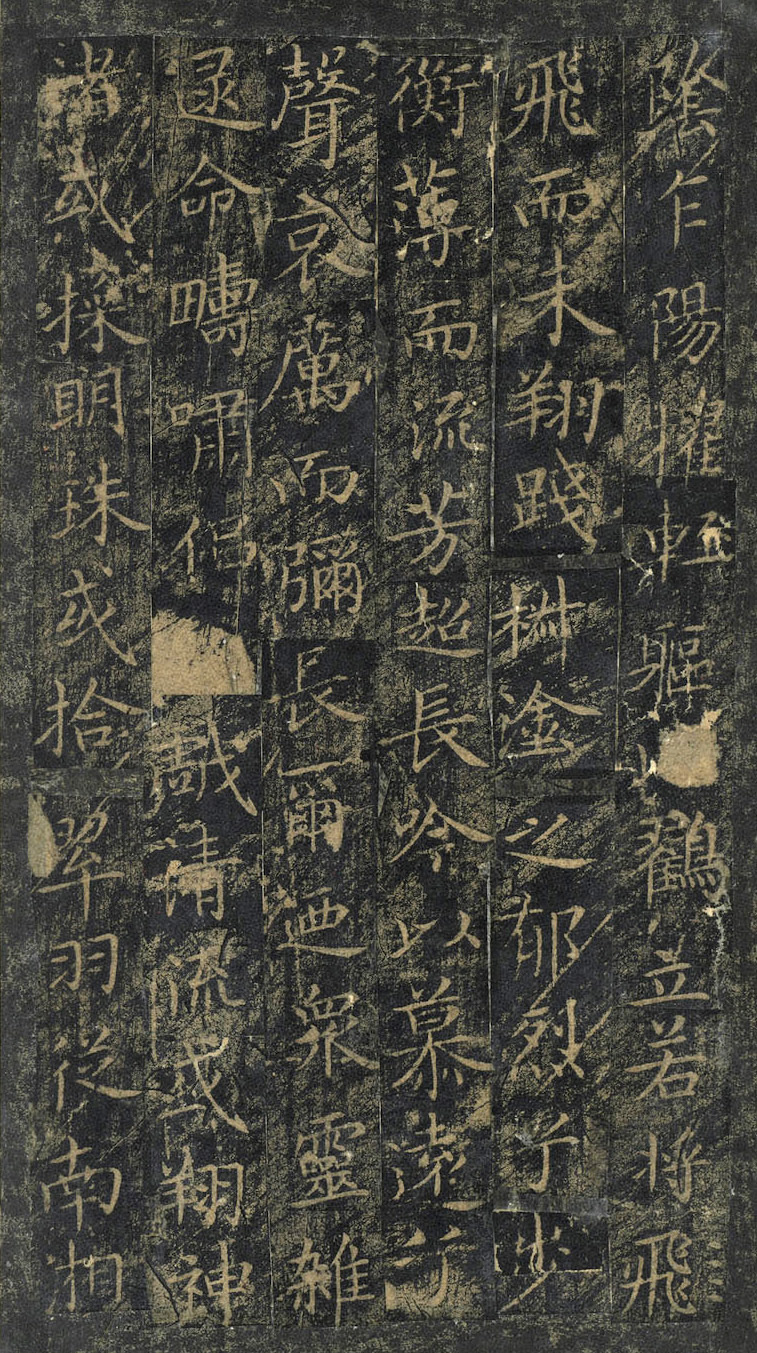 陰乍陽擢輕軀以鶴立若將飛
飛而未翔踐椒塗之郁烈兮步
衡薄而流芳超長吟以慕遠兮
聲哀厲而彌長爾迺衆靈雜
遝命疇嘯侶戲清流或翔神
渚或採明珠或拾翠羽從南湘